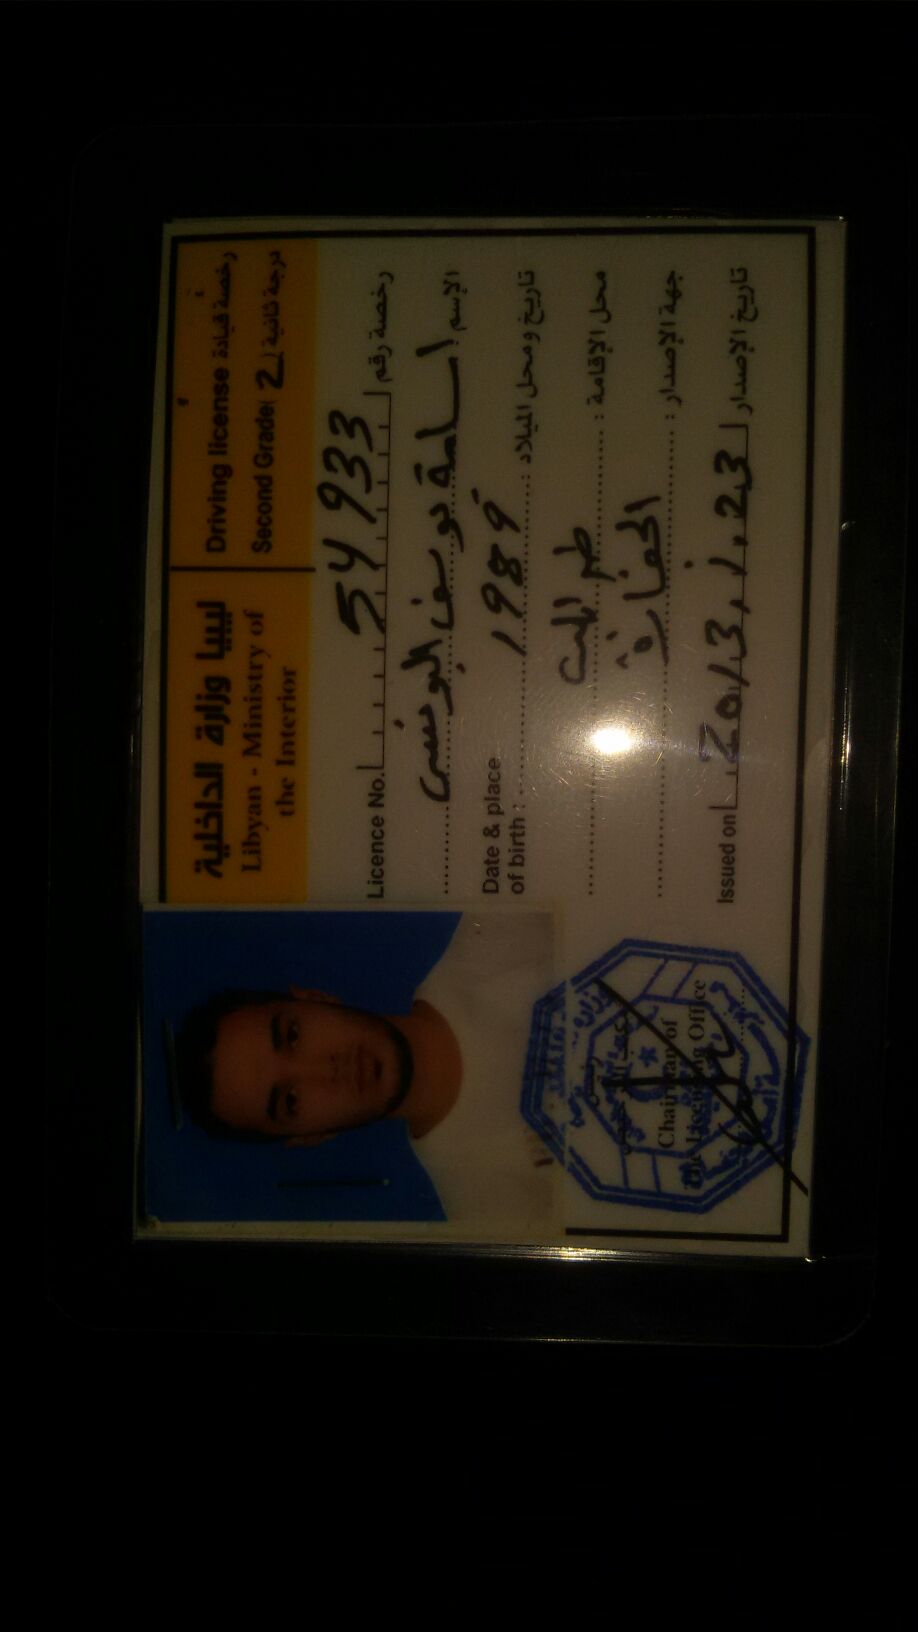 ليبيا وزارة الداخلية
Libyan - Ministry of
the Interior
رخصة قيادة Driving license
درجة ثانية Second Grade( 2 )
Licence No. 54933 رخصة رقم
الإسم أسامة يوسف
Date & place
of birth : 1989 : تاريخ ومحل الميلاد
محل الإقامة : طرابلس
جهة الإصدار :
Issued on 2013.1.23 تاريخ الإصدار
رئيس
Chairman of
The Licensing Office